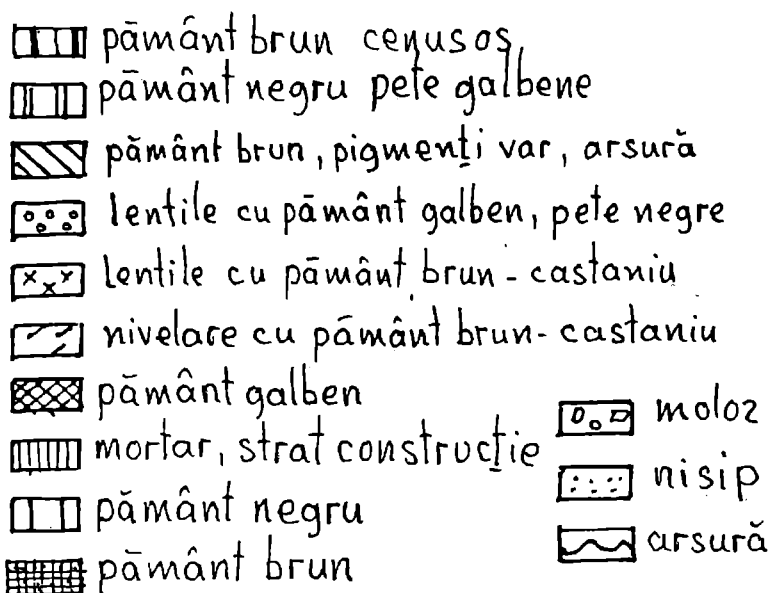 pământ brun cenusos
pământ negru pete galbene
pământ brun, pigmenți var, arsură
lentile cu pământ galben, pete negre
lentile cu pământ brun - castaniu
nivelare cu pământ brun - castaniu
pământ galben
mortar, strat construcție
pământ negru
pământ brun
moloz
nisip
arsură